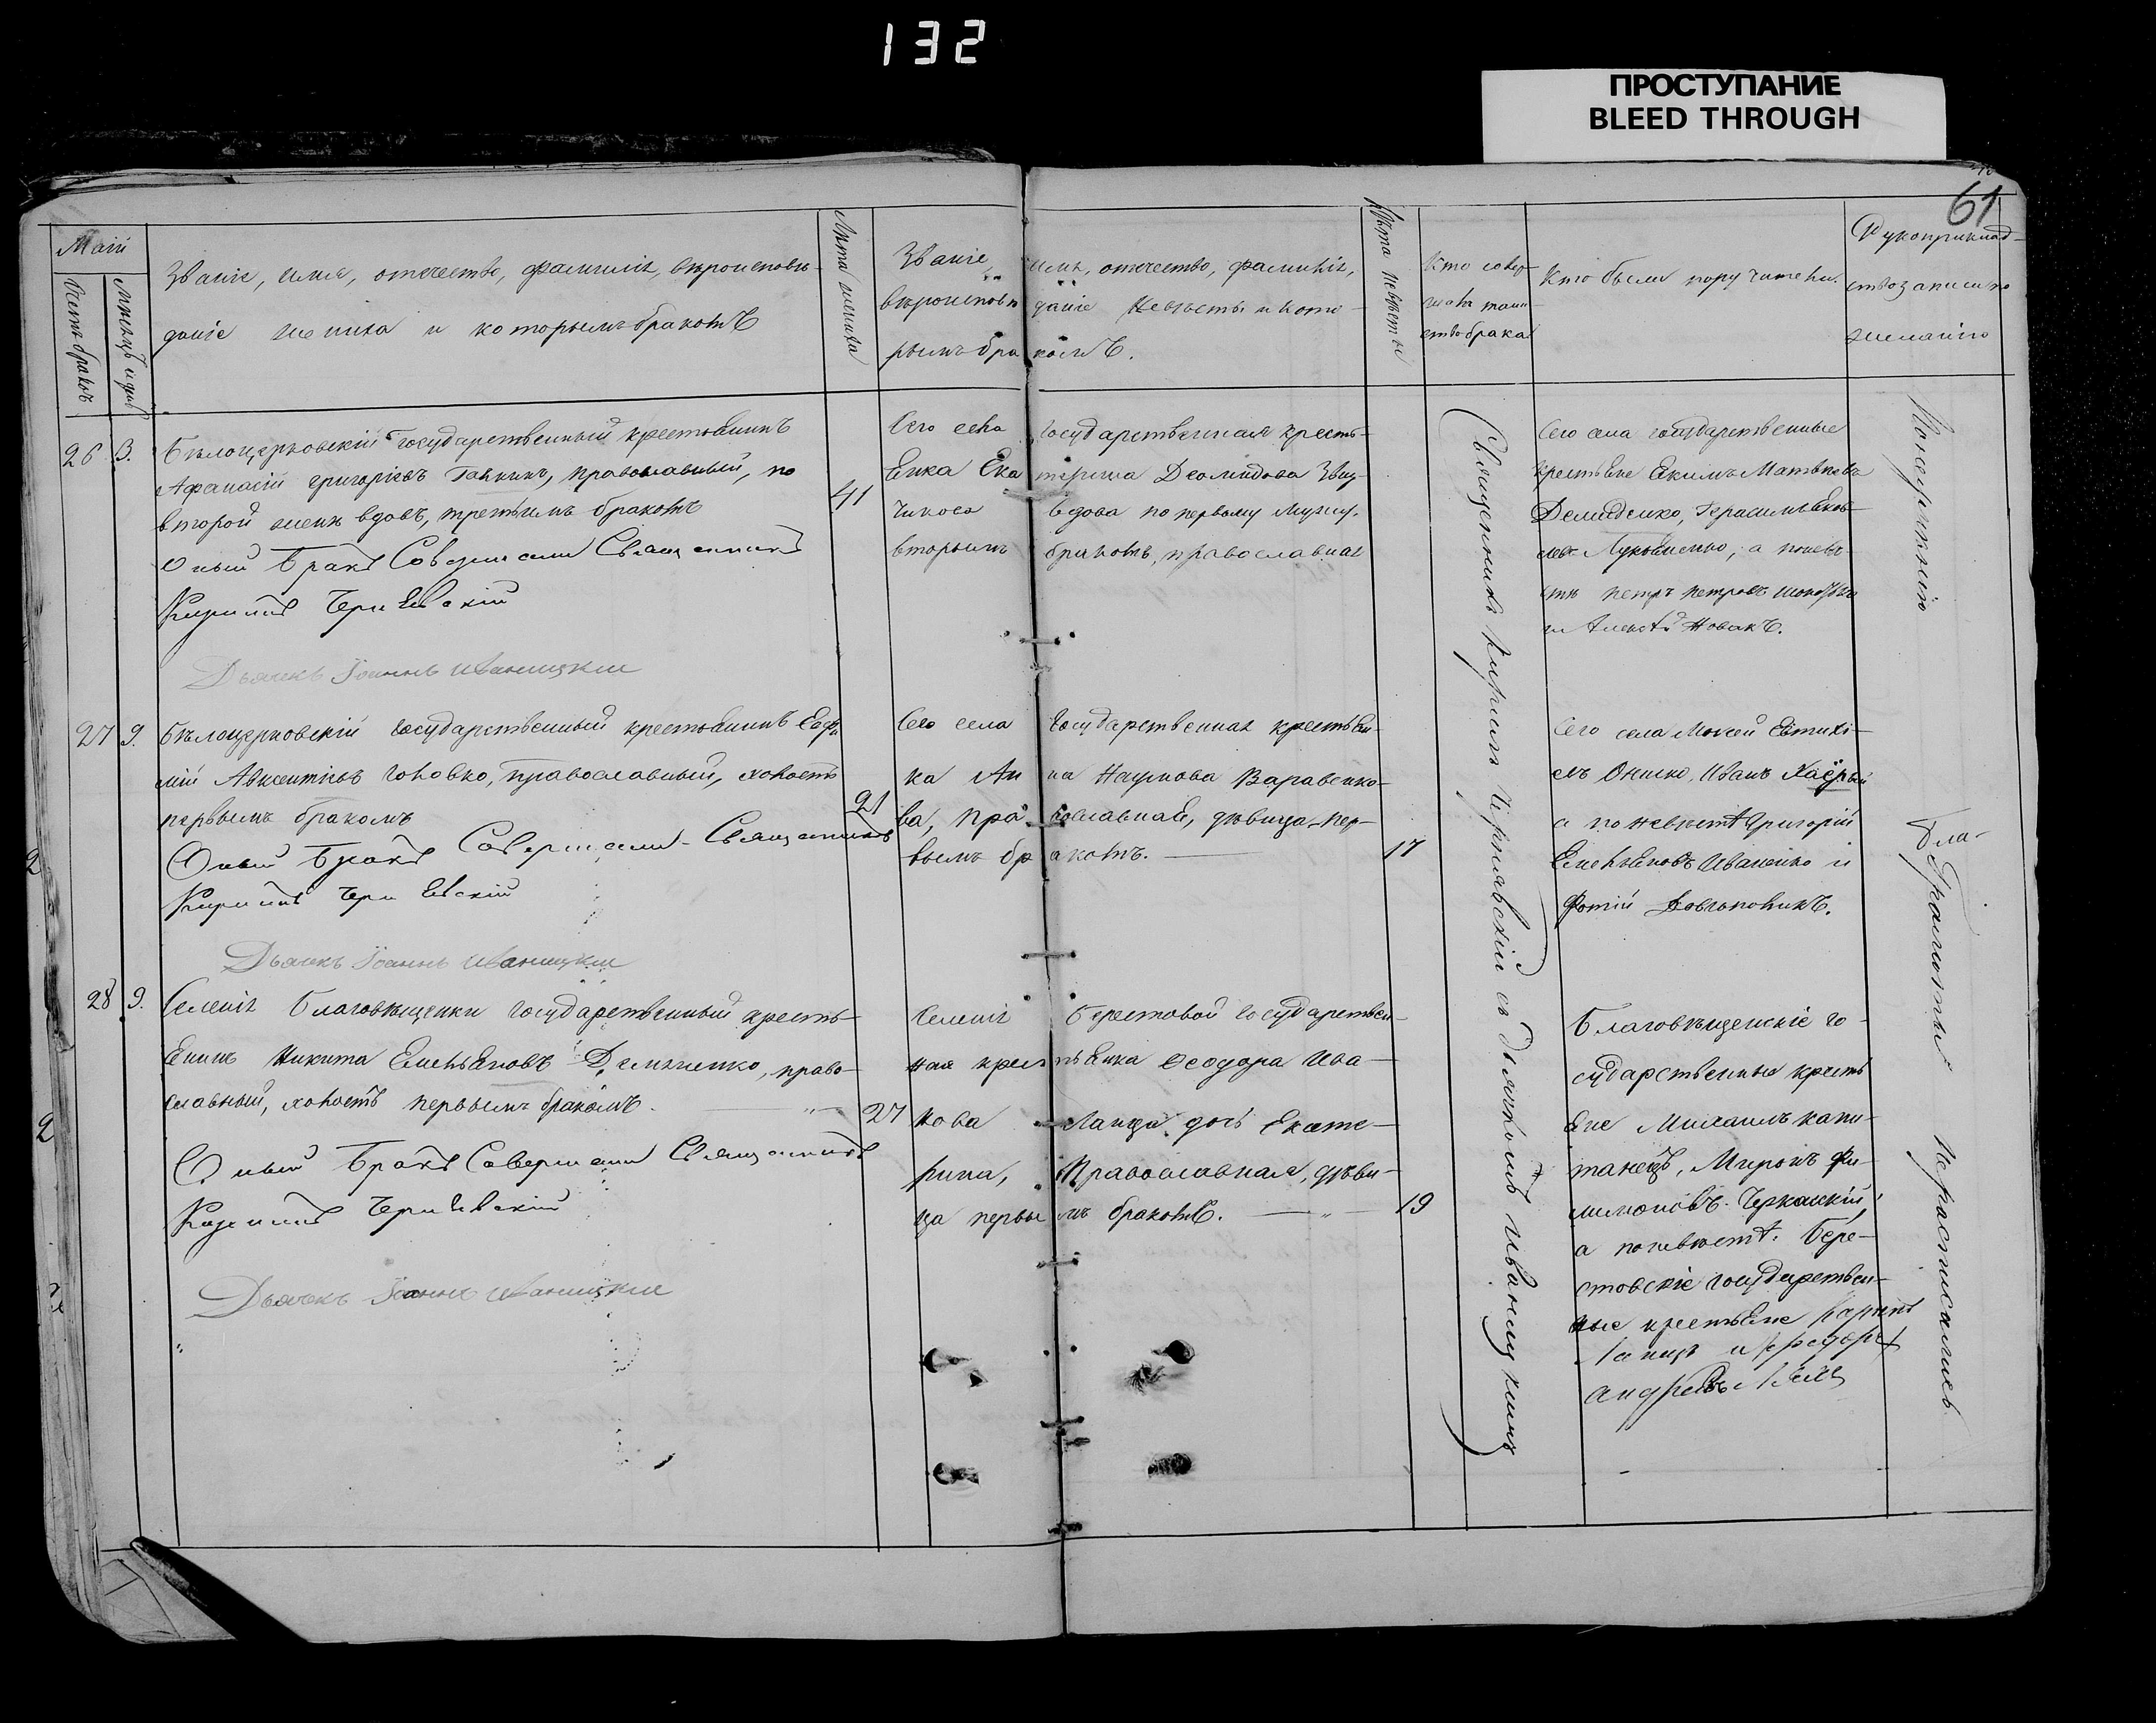 132
ПРОСТУПАНИЕ
BLEED THROUGH
61
Маій
Счетъ браковъ
Мѣсяцъ и день
Званіе, имя, отчество, фамилія, вѣроисповѣ-
даніе жениха и которымъ бракомъ
Лѣта жениха
Званіе, имя, отчество, фамилія,
вѣроисповѣданіе невѣсты и кото-
рымъ бракомъ.
Лѣта невѣсты
Кто совер-
шалъ таин-
ство брака
Кто были поручители.
Рукоприклад-
ство записей по
желанію
26 3.
Бѣлоцерковскій государственный крестьянинъ
Афанасій Григоріевъ православный, по
второй женѣ вдовъ, третьимъ бракомъ
41
Оный Бракъ Совершали Священникъ
Кирилъ Чернявскій
Дьячекъ Іоаннъ Иваницкій
Сего села государственная кресть-
янка Екатерина
вдова по первому мужу,
вторымъ бракомъ, православная
Сего села государственные
крестьяне Екимъ Матвѣевъ
Демиденко, Герасимъ
Лукьяненко, а по невѣ-
стѣ Петръ Петровъ
и Алексѣй Новакъ.
27 9.
Бѣлоцерковскій государственный крестьянинъ Евфи
мій Авксентіевъ Головко, православный, холостъ
первымъ бракомъ
21
Оный Бракъ Совершали Священникъ
Кирилъ Чернявскій
Дьячекъ Іоаннъ Иваницкій
Сего села государственная крестьян-
ка Анна Наумова Варавенко-
ва, православная, дѣвица, пер-
вымъ бракомъ.
17
Сего села Моисей Евтихі-
евъ Онишко, Иванъ
а по невѣстѣ Григорій
Емельяновъ Иваненко и
Фотій
28 9.
Селенія Благовѣщенки государственный кресть-
янинъ Никита Емельяновъ Демьяненко, право-
славный, холостъ первымъ бракомъ.
27
Оный Бракъ Совершали Священникъ
Кирилъ Чернявскій
Дьячекъ Іоаннъ Иваницкій
Селенія Берестовой государствен-
ная крестьянка Феодора Ива-
нова Ланца дочь Екате-
рина, Православная, дѣви-
ца первымъ бракомъ.
19
Благовѣщенскіе го-
сударственные кресть
яне Михаилъ Капи-
танецъ, Миронъ Фи-
лимоновъ Черкаскій,
а по невѣстѣ: Бере-
стовскіе государствен-
ные крестьяне
Ланцъ и
Андреевъ
Священникъ Кирилъ Чернявскій съ дьячкомъ Иваницкимъ
По неумѣнію
грамоты не расписались